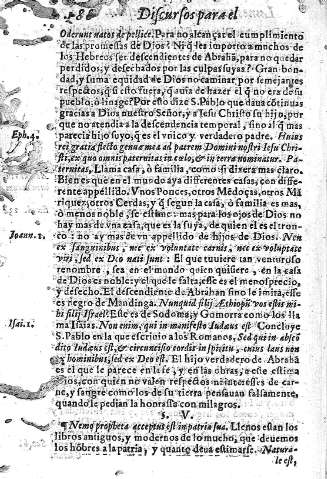 186 Discursos para el
Oderunt natos de pellice. Para no alcançar el cumplimiento
de las promessas de Dios? Ni q̃ les importo a muchos de
los Hebreos ser descendientes de Abrahã, para no quedar
perdidos, y desechados por las culpas suyas? Gran bon-
dad, y suma equidad de Dios no caminar por semejantes
respetos, q̃ si esto fuera, q̃ auia de hazer el q̃ no era de su
pueblo, o linage? Por esto dize S. Pablo que daua cõtinuas
gracias a Dios nuestro Señor, y a Iesu Christo su hijo, por
que no atendia a la decendencia temporal, sino al q̃ mas
Eph. 4. parecia hijo suyo, q̃ es el vnico y verdadero padre. Huius
rei gratia flecto genua mea ad patrem Domini nostri Iesu Chri-
sti, ex quo omnis paternitas in cœlo, & in terra nominatur. Pa-
ternitas, Llama casa, o familia, como si dixera mas claro.
Bien es que en el mundo aya diferentes casas, con diffe-
rente appellido. Vnos Ponces, otros Mẽdoças, otros Mã
riquez, otros Cerdas, y q̃ segun la casa, o familia es mas,
o menos noble, se estime: mas para los ojos de Dios no
hay mas de vna casa, que es la suya, de quien el es el tron-
Ioann. 1. co: no ay mas de vn appellido de hijos de Dios. Non
ex sanguinibus, neque ex voluntate carnis, neque ex voluptate
viri, sed ex Deo nati sunt: El que tuuiere tan venturoso
renombre, sea en el mundo quien quisiere, en la casa
de Dios es noble; y el que le falta, esse es el menosprecio,
y desecho. El descendiente de Abrahan sino le imita, esse
es negro de Mandinga. Nunquid filij Æthiopũ vos estis mi-
hi filij Israel? Esse es de Sodoma, y Gomorra como los lla
Isai. 1. ma Isaias. Non enim, qui in manifesto Iudæus est Concluye
S. Pablo en la que escriuio a los Romanos, Sed qui in abscõ
dito Iudæus est, & circuncisio cordis in spiritu, cuius laus non
ex hominibus, sed ex Deo est. El hijo verdadero de Abrahã
es el que le parece en la fe, y en las obras, a este estima
Dios, con quien no valen respetos ni intereses de car-
ne, y sangre como los de su tierra pensauan falsamente,
quando le pedian la honrasse con milagros.
§. V.
¶ Nemo propheta acceptus est in patria sua. Llenos estan los
libros antiguos, y modernos de lo mucho, que deuemos
los hõbres a la patria, y quanto deua estimarse. Natura-
le est,